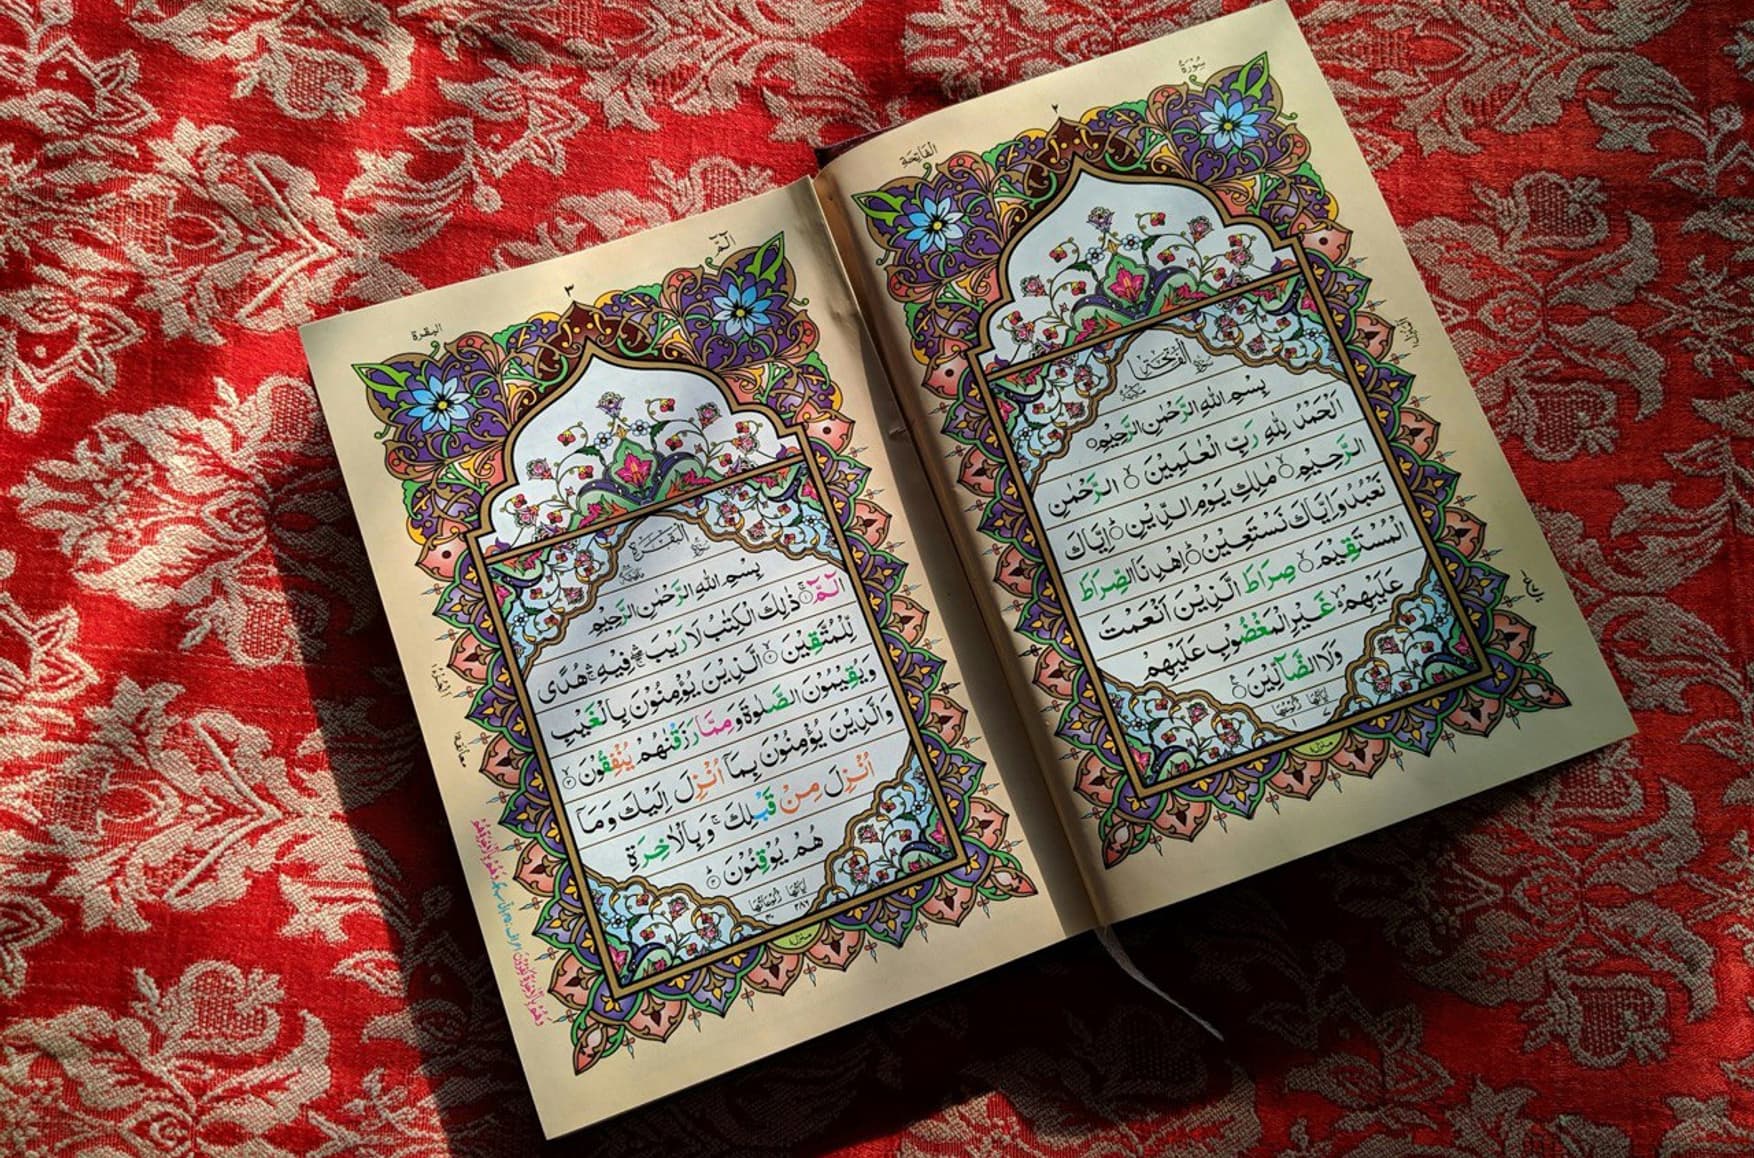 سُوْرَةُ
٢
الفَاتِحَة
سُوْرَةُ الْفَاتِحَة مَكِّيَّة
بِسْمِ اللهِ الرَّحْمٰنِ الرَّحِيْمِ
اَلْحَمْدُ لِلّٰهِ رَبِّ الْعٰلَمِيْنَ ۙ الرَّحْمٰنِ
الرَّحِيْمِ ۙ مٰلِكِ يَوْمِ الدِّيْنِ ؕ اِيَّاكَ
نَعْبُدُ وَاِيَّاكَ نَسْتَعِيْنُ ؕ اِهْدِنَا الصِّرَاطَ
الْمُسْتَقِيْمَ ۙ صِرَاطَ الَّذِيْنَ اَنْعَمْتَ
عَلَيْهِمْ ۙ غَيْرِ الْمَغْضُوْبِ عَلَيْهِمْ
وَلَا الضَّآلِّيْنَ
اٰيَاتُهَا ٧ رُكُوْعُهَا ١
منزل ١
الٓمّٓ
٣
البقرة
سُوْرَةُ الْبَقَرَة مَدَنِيَّة
بِسْمِ اللهِ الرَّحْمٰنِ الرَّحِيْمِ
الٓمّٓ ۚ ذٰلِكَ الْكِتٰبُ لَا رَيْبَ ۛ فِيْهِ ۛ هُدًى
لِّلْمُتَّقِيْنَ ۙ الَّذِيْنَ يُؤْمِنُوْنَ بِالْغَيْبِ
وَيُقِيْمُوْنَ الصَّلٰوةَ وَمِمَّا رَزَقْنٰهُمْ يُنْفِقُوْنَ ۙ
وَالَّذِيْنَ يُؤْمِنُوْنَ بِمَآ اُنْزِلَ اِلَيْكَ وَمَآ
اُنْزِلَ مِنْ قَبْلِكَ ۚ وَبِالْاٰخِرَةِ
هُمْ يُوْقِنُوْنَ ؕ
اٰيَاتُهَا ٢٨٦ رُكُوْعَاتُهَا ٤٠
منزل ١